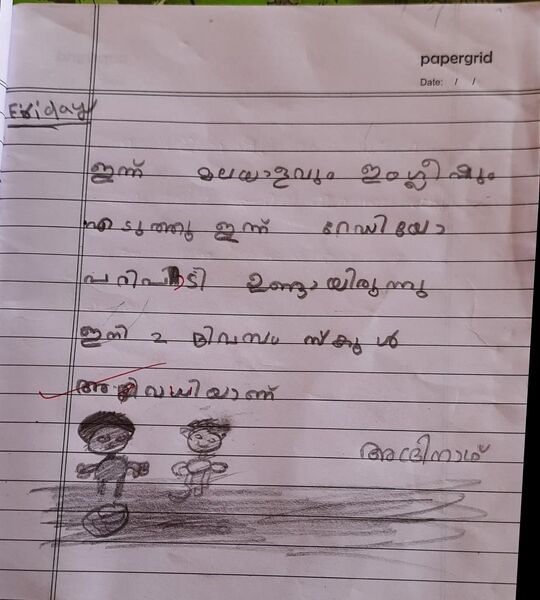 papergrid
Date: / /
Friday
ഇന്ന് മലയാളവും ഇംഗ്ലീഷും
എടുത്തു ഇന്ന് റേഡിയോ
പരിപാടി ഉണ്ടായിരുന്നു
ഇനി 2 ദിവസം സ്കൂൾ
അവധിയാണ്